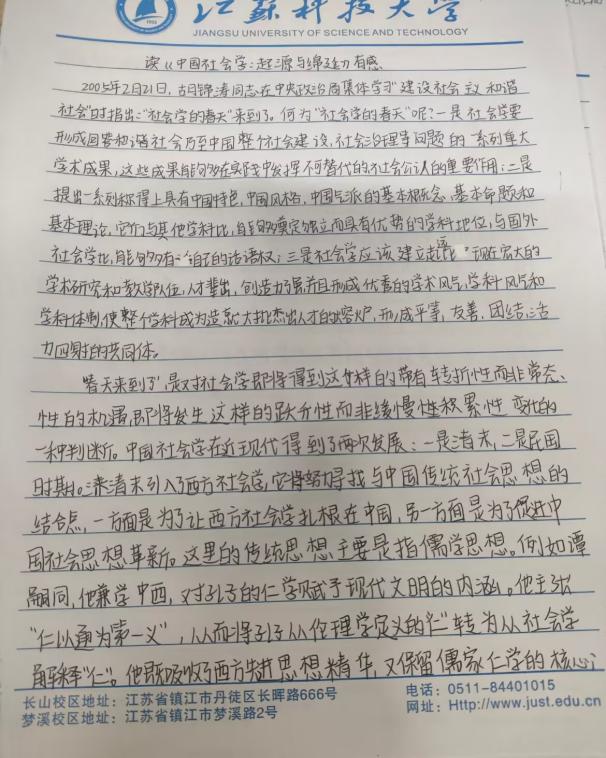 江苏科技大学
JIANGSU UNIVERSITY OF SCIENCE AND TECHNOLOGY
读《中国社会学:起源与绵延》有感
2005年2月21日,胡锦涛同志在中央政治局集体学习"建设社会主义和谐
社会"时指出:"社会学的春天"来到了。何为"社会学的春天"呢?一是社会学要
形成回答和谐社会乃至中国整个社会建设,社会治理等问题的一系列重大
学术成果,这些成果能够在实践中发挥不可替代的社会公认的重要作用;二是
提出一系列称得上具有中国特色,中国风格,中国气派的基本概念,基本命题和
基本理论,它们与其他学科比,能够奠定独立而具有优势的学科地位,与国外
社会学比,能够有自己的话语权;三是社会学应该建立起 现在宏大的
学术研究和教学队伍,人才辈出,创造力强并且形成优秀的学术风气,学科风气和
学科体制,使整个学科成为造就大批杰出人才的熔炉,形成平等,友善,团结,活
力四射的共同体。
"春天来到了",是对社会学即将得到这样的带有转折性而非常态
性的机遇,即将发生这样的跃升性而非缓慢性积累性变化的
一种判断。中国社会学在近现代得到了两次发展:一是清末,二是民国
时期。清末引入了西方社会学,它将努力寻找与中国传统社会思想的
结合点,一方面是为了让西方社会学扎根在中国,另一方面是为了促进中
国社会思想革新。这里的传统思想主要是指儒学思想。例如谭
嗣同,他兼学中西,对孔子的仁学赋予现代文明的内涵。他主张
"仁以通为第一义",从而将孔子从伦理学定义的"仁"转为从社会学
解释"仁"。他既吸收了西方先进思想精华,又保留儒家仁学的核心;
长山校区地址:江苏省镇江市丹徒区长晖路666号
梦溪校区地址:江苏省镇江市梦溪路2号
电话:0511-84401015
网址:Http://www.just.edu.cn